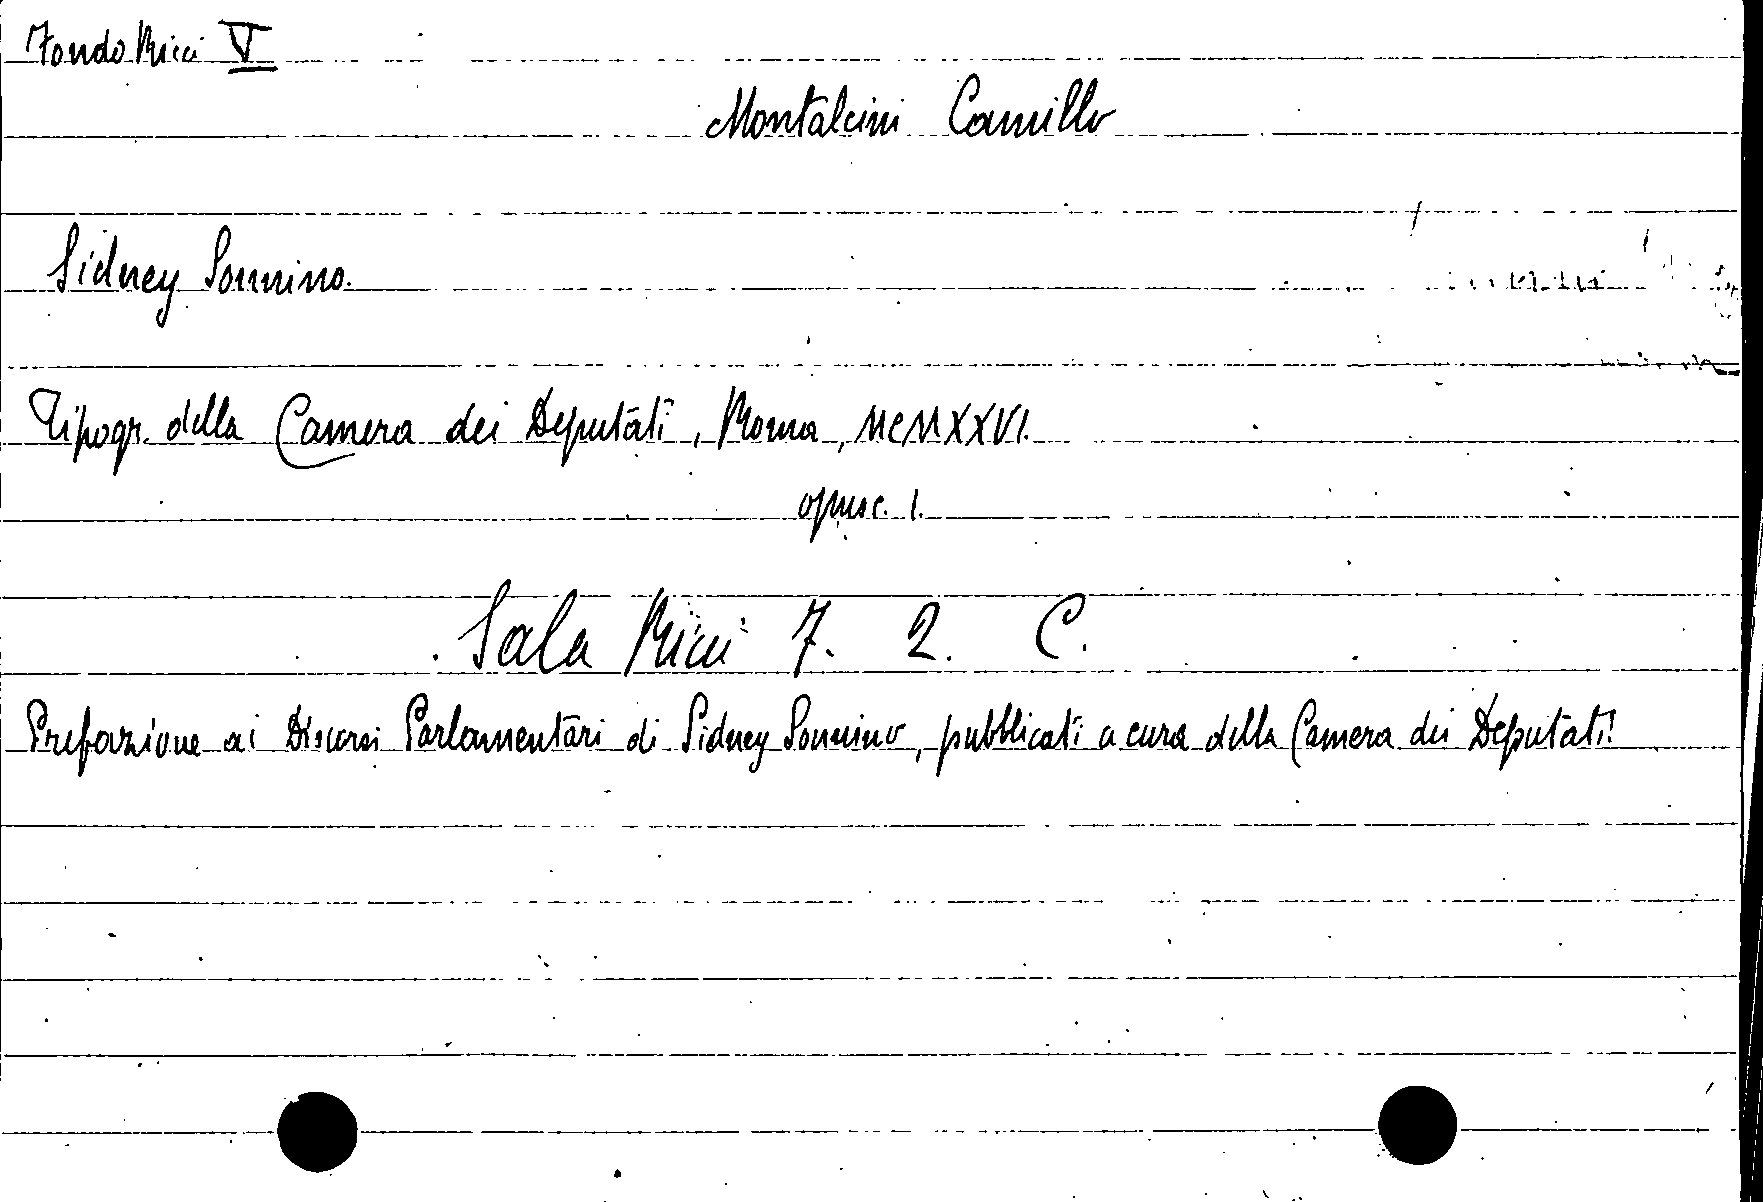 Fondo Ricci V
Montalcini Camillo
Sidney Sonnino.
Tipogr. della Camera dei Deputati, Roma, MCMXXVI.
opusc. 1.
Sala Ricci 7. 2. C.
Prefazione ai Discorsi Parlamentari di Sidney Sonnino, pubblicati a cura della Camera dei Deputati.